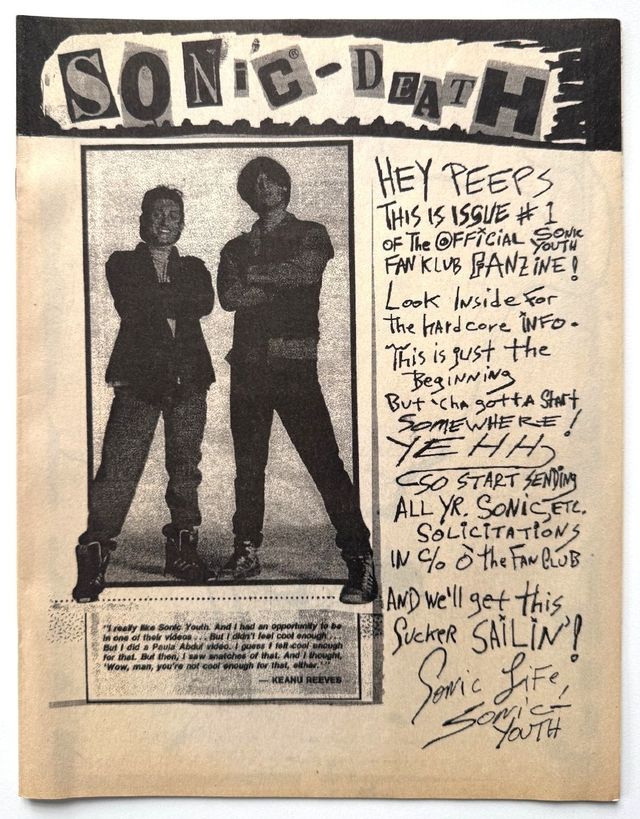 SONiC®-DEATH
HEY PEEPS
THIS IS ISSUE # 1
OF THe OFFiCiAL SONIC YOUTH
FAN KLUB FANZINE!
Look Inside For
the hArdcore INFO.
This is just the
Beginning
But 'cha gotta Start
SOMEWHERE!
YEHH
SO START SENDING
ALL YR. SONIC, ETC.
SOLICITATIONS
IN C/O Ô the FAN CLUB
AND We'll get this
Sucker SAILIN'!
Sonic Life,
SONIC-
YOUTH
"I really like Sonic Youth. And I had an opportunity to be
in one of their videos . . . But I didn't feel cool enough . . .
But I did a Paula Abdul video. I guess I felt cool enough
for that. But then, I saw snatches of that. And I thought,
'Wow, man, you're not cool enough for that, either.'"
— KEANU REEVES